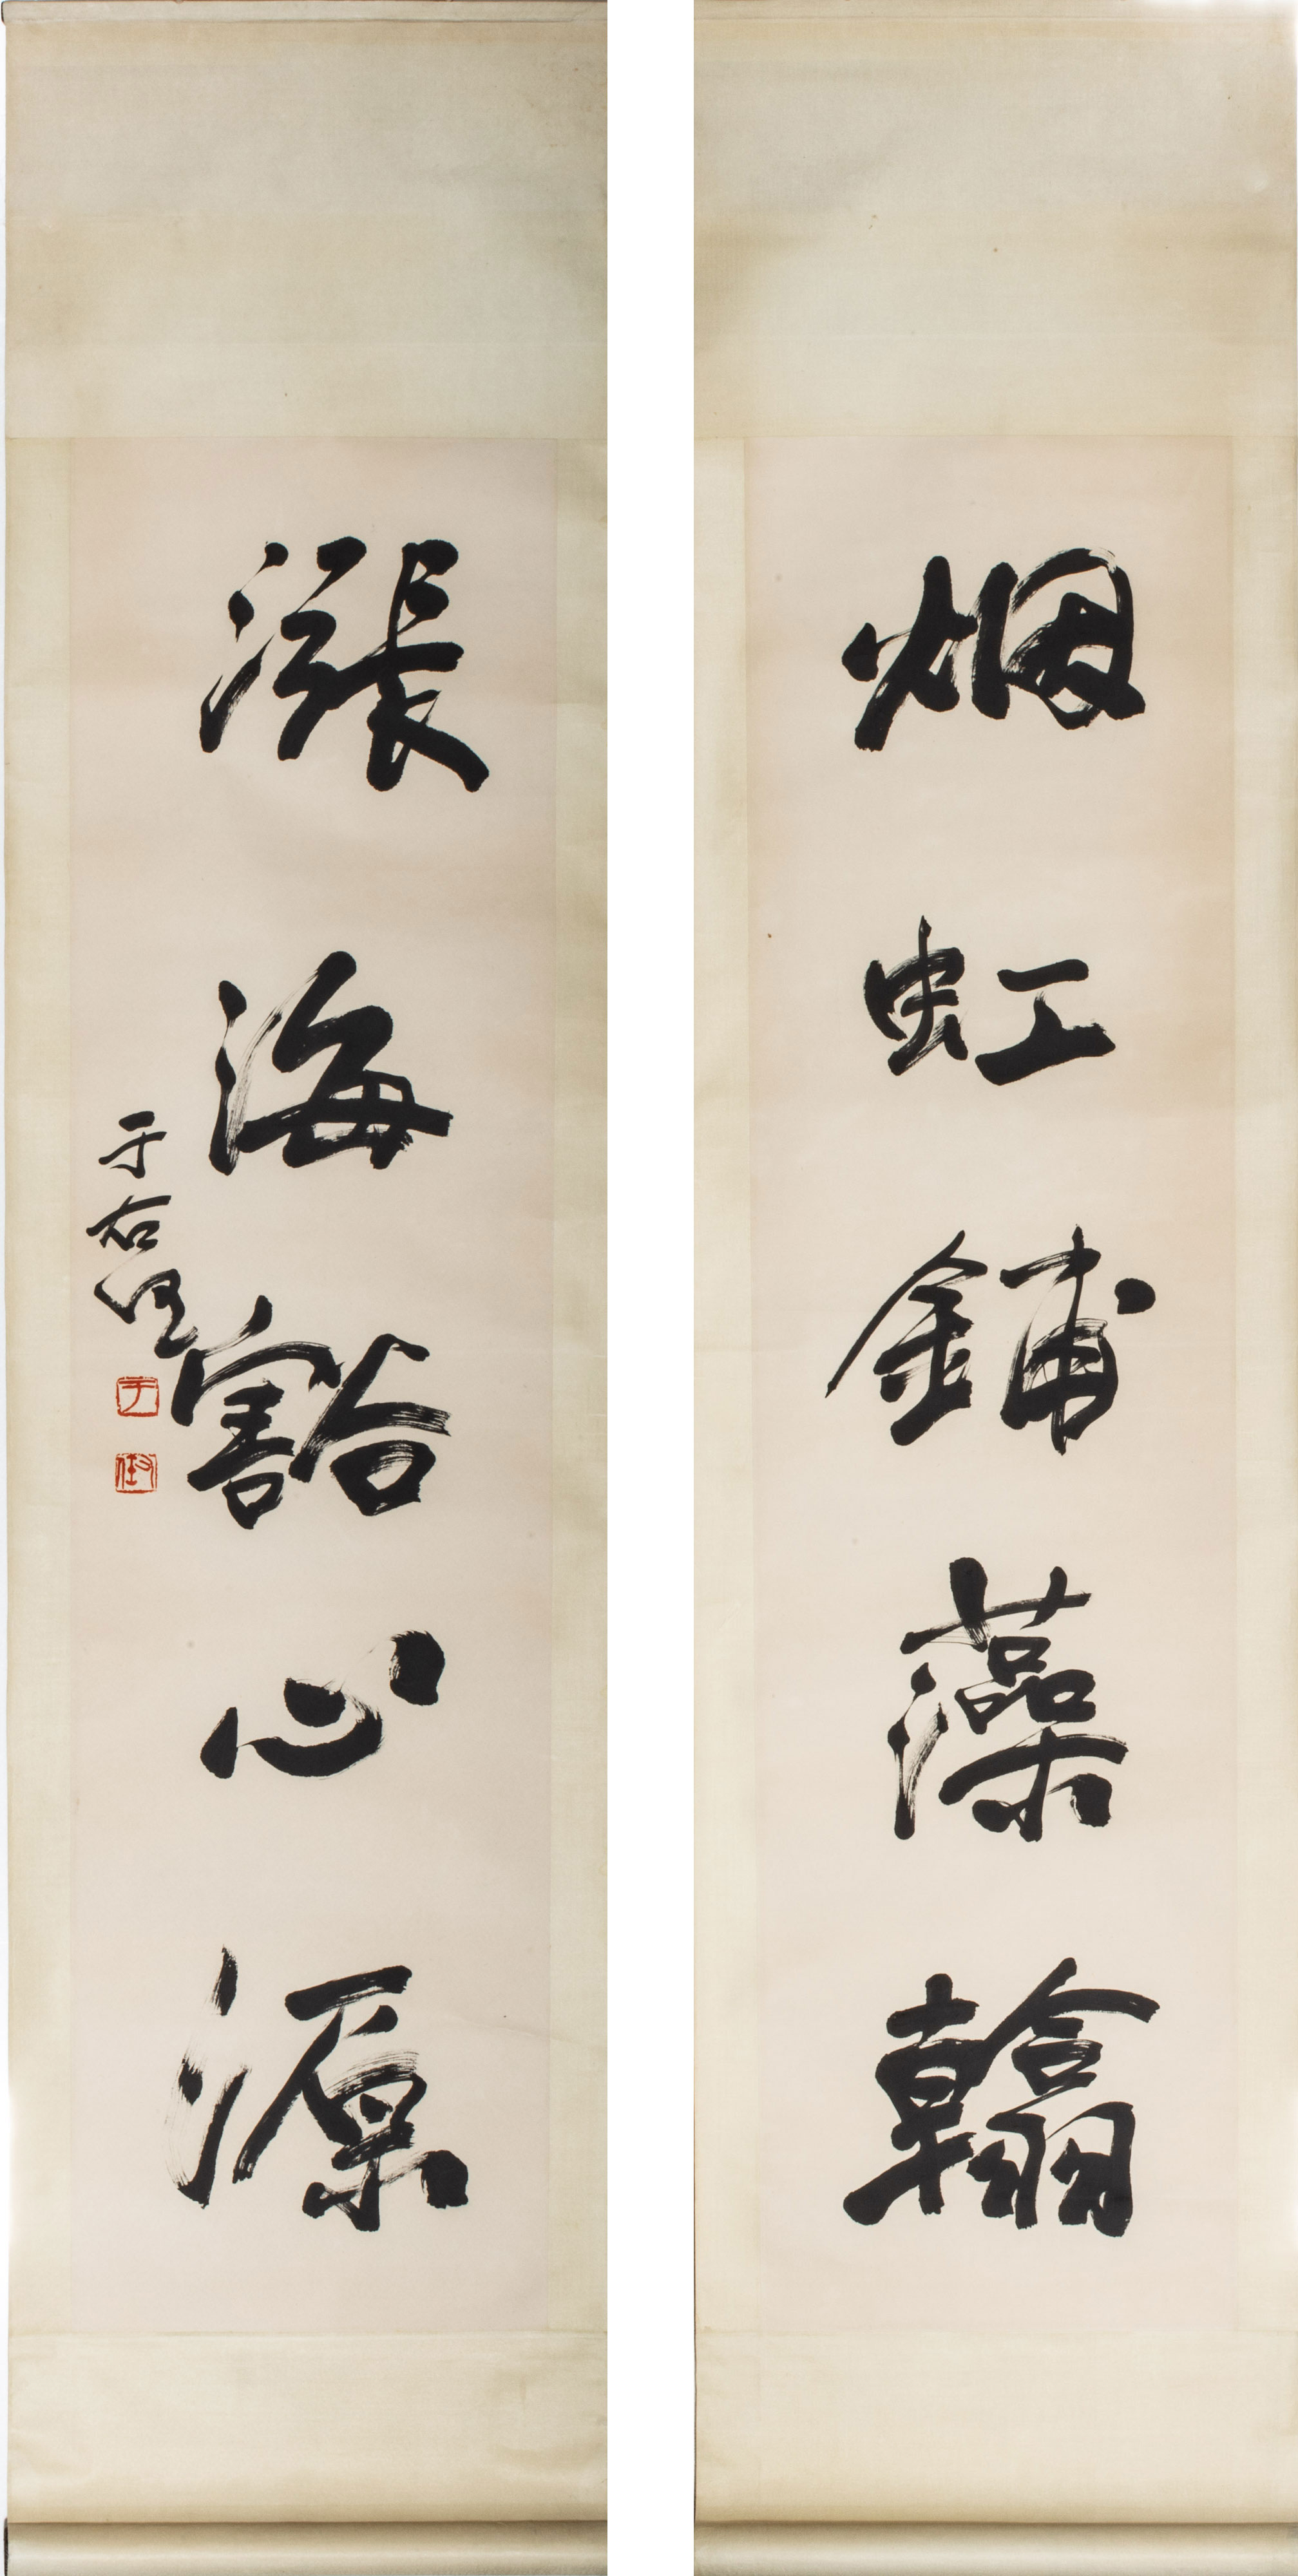 烟虹鋪藻翰
漲海豁心源
于右任